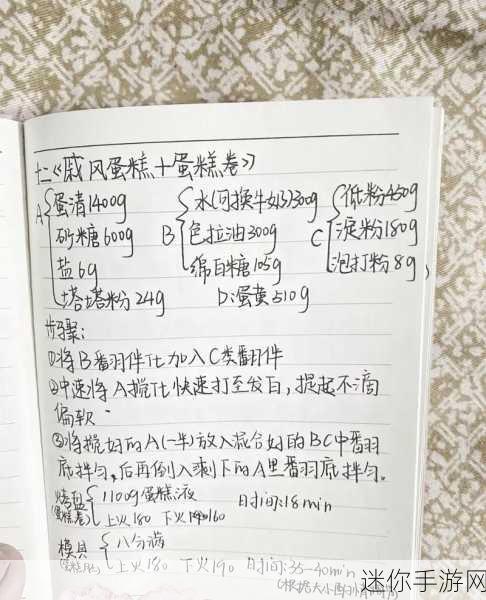 十二《戚风蛋糕+蛋糕卷》
A { 蛋清1400g 砂糖600g 盐6g 塔塔粉24g
B { 水(可换牛奶)300g 色拉油300g 绵白糖105g
C { 低粉450g 淀粉180g 泡打粉8g
D:蛋黄510g
步骤:
①将B番羽伴化加入C类翻伴
②中速将A搅化快速打至发白,提起不滴
偏软
③将搅好的A(一半)放入混合好的BC中番羽
底拌匀,后再倒入剩下的A里番羽底拌匀。
烤盘(蛋糕卷) { 1100g蛋糕液 时间:18min
上火180 下火160
模具 { 八分满
上火180 下火190 时间:35-40min
(根据大小
迷你手游网